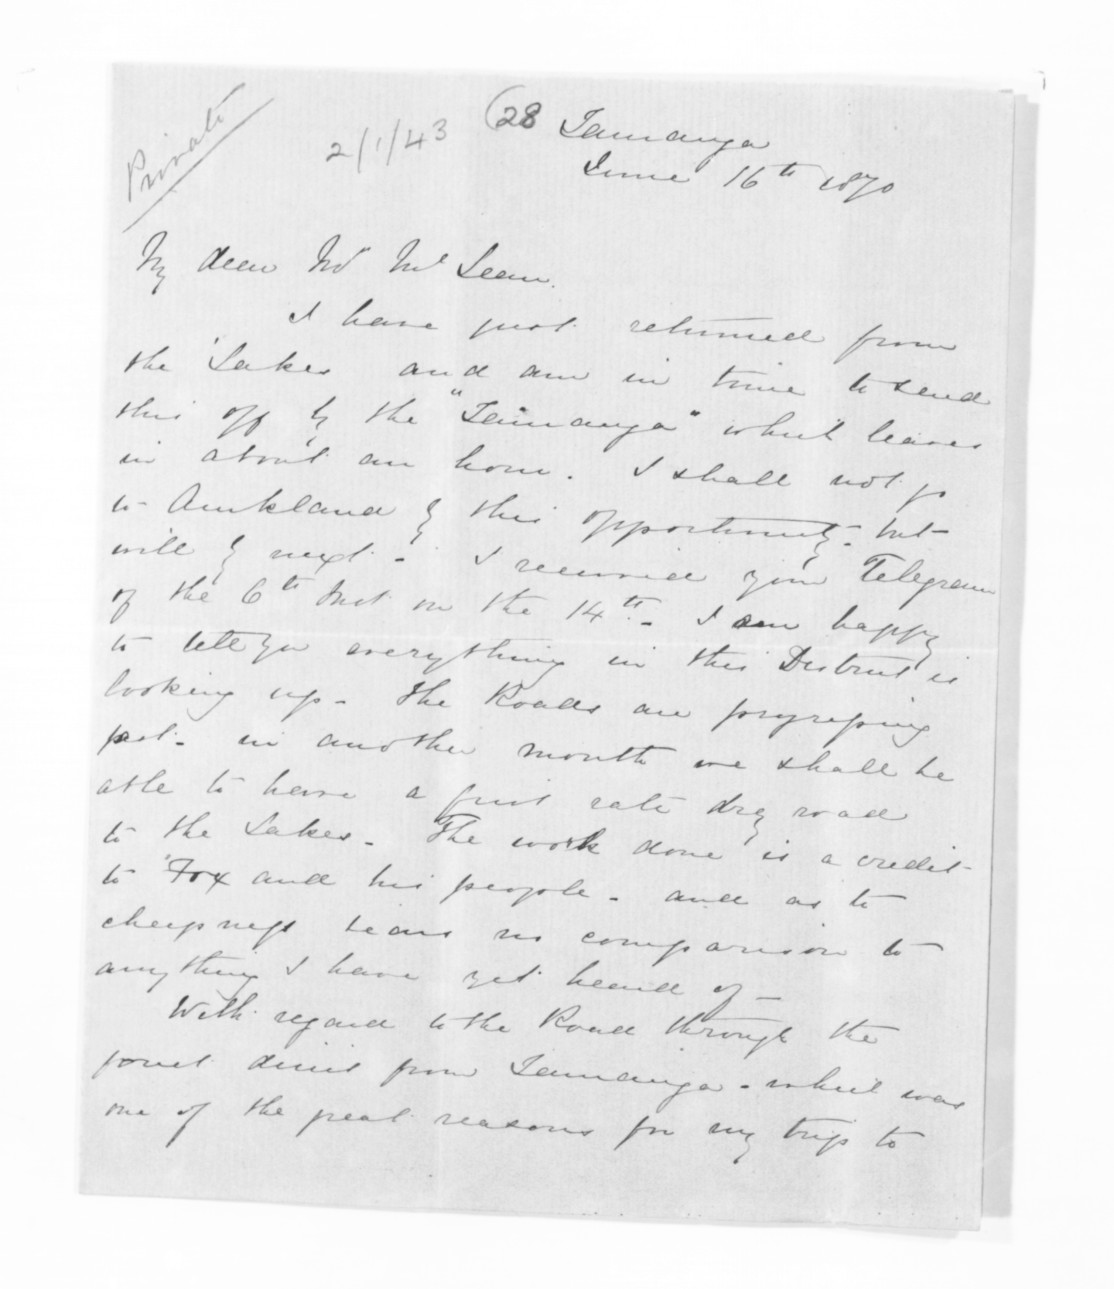 Private
2/1/43
(28 Tauranga
June 16th 1870
My dear Mr McLean.
I have just returned from
the Lakes and am in time to send
this off by the "Tauranga" which leaves
in about an hour. I shall not go
to Auckland by this opportunity - but
will by next - I received your Telegram
of the 6th Inst on the 14th - I am happy
to tell you everything in this District is
looking up - The Roads are progressing
fast - in another month we shall be
able to have a first rate dray road
to the Lakes - The work done is a credit
to Fox and his people - and as to
cheapness bears no comparison to
anything I have yet heard of -
With regard to the Road through the
forest direct from Tauranga - which was
one of the great reasons for my trip to